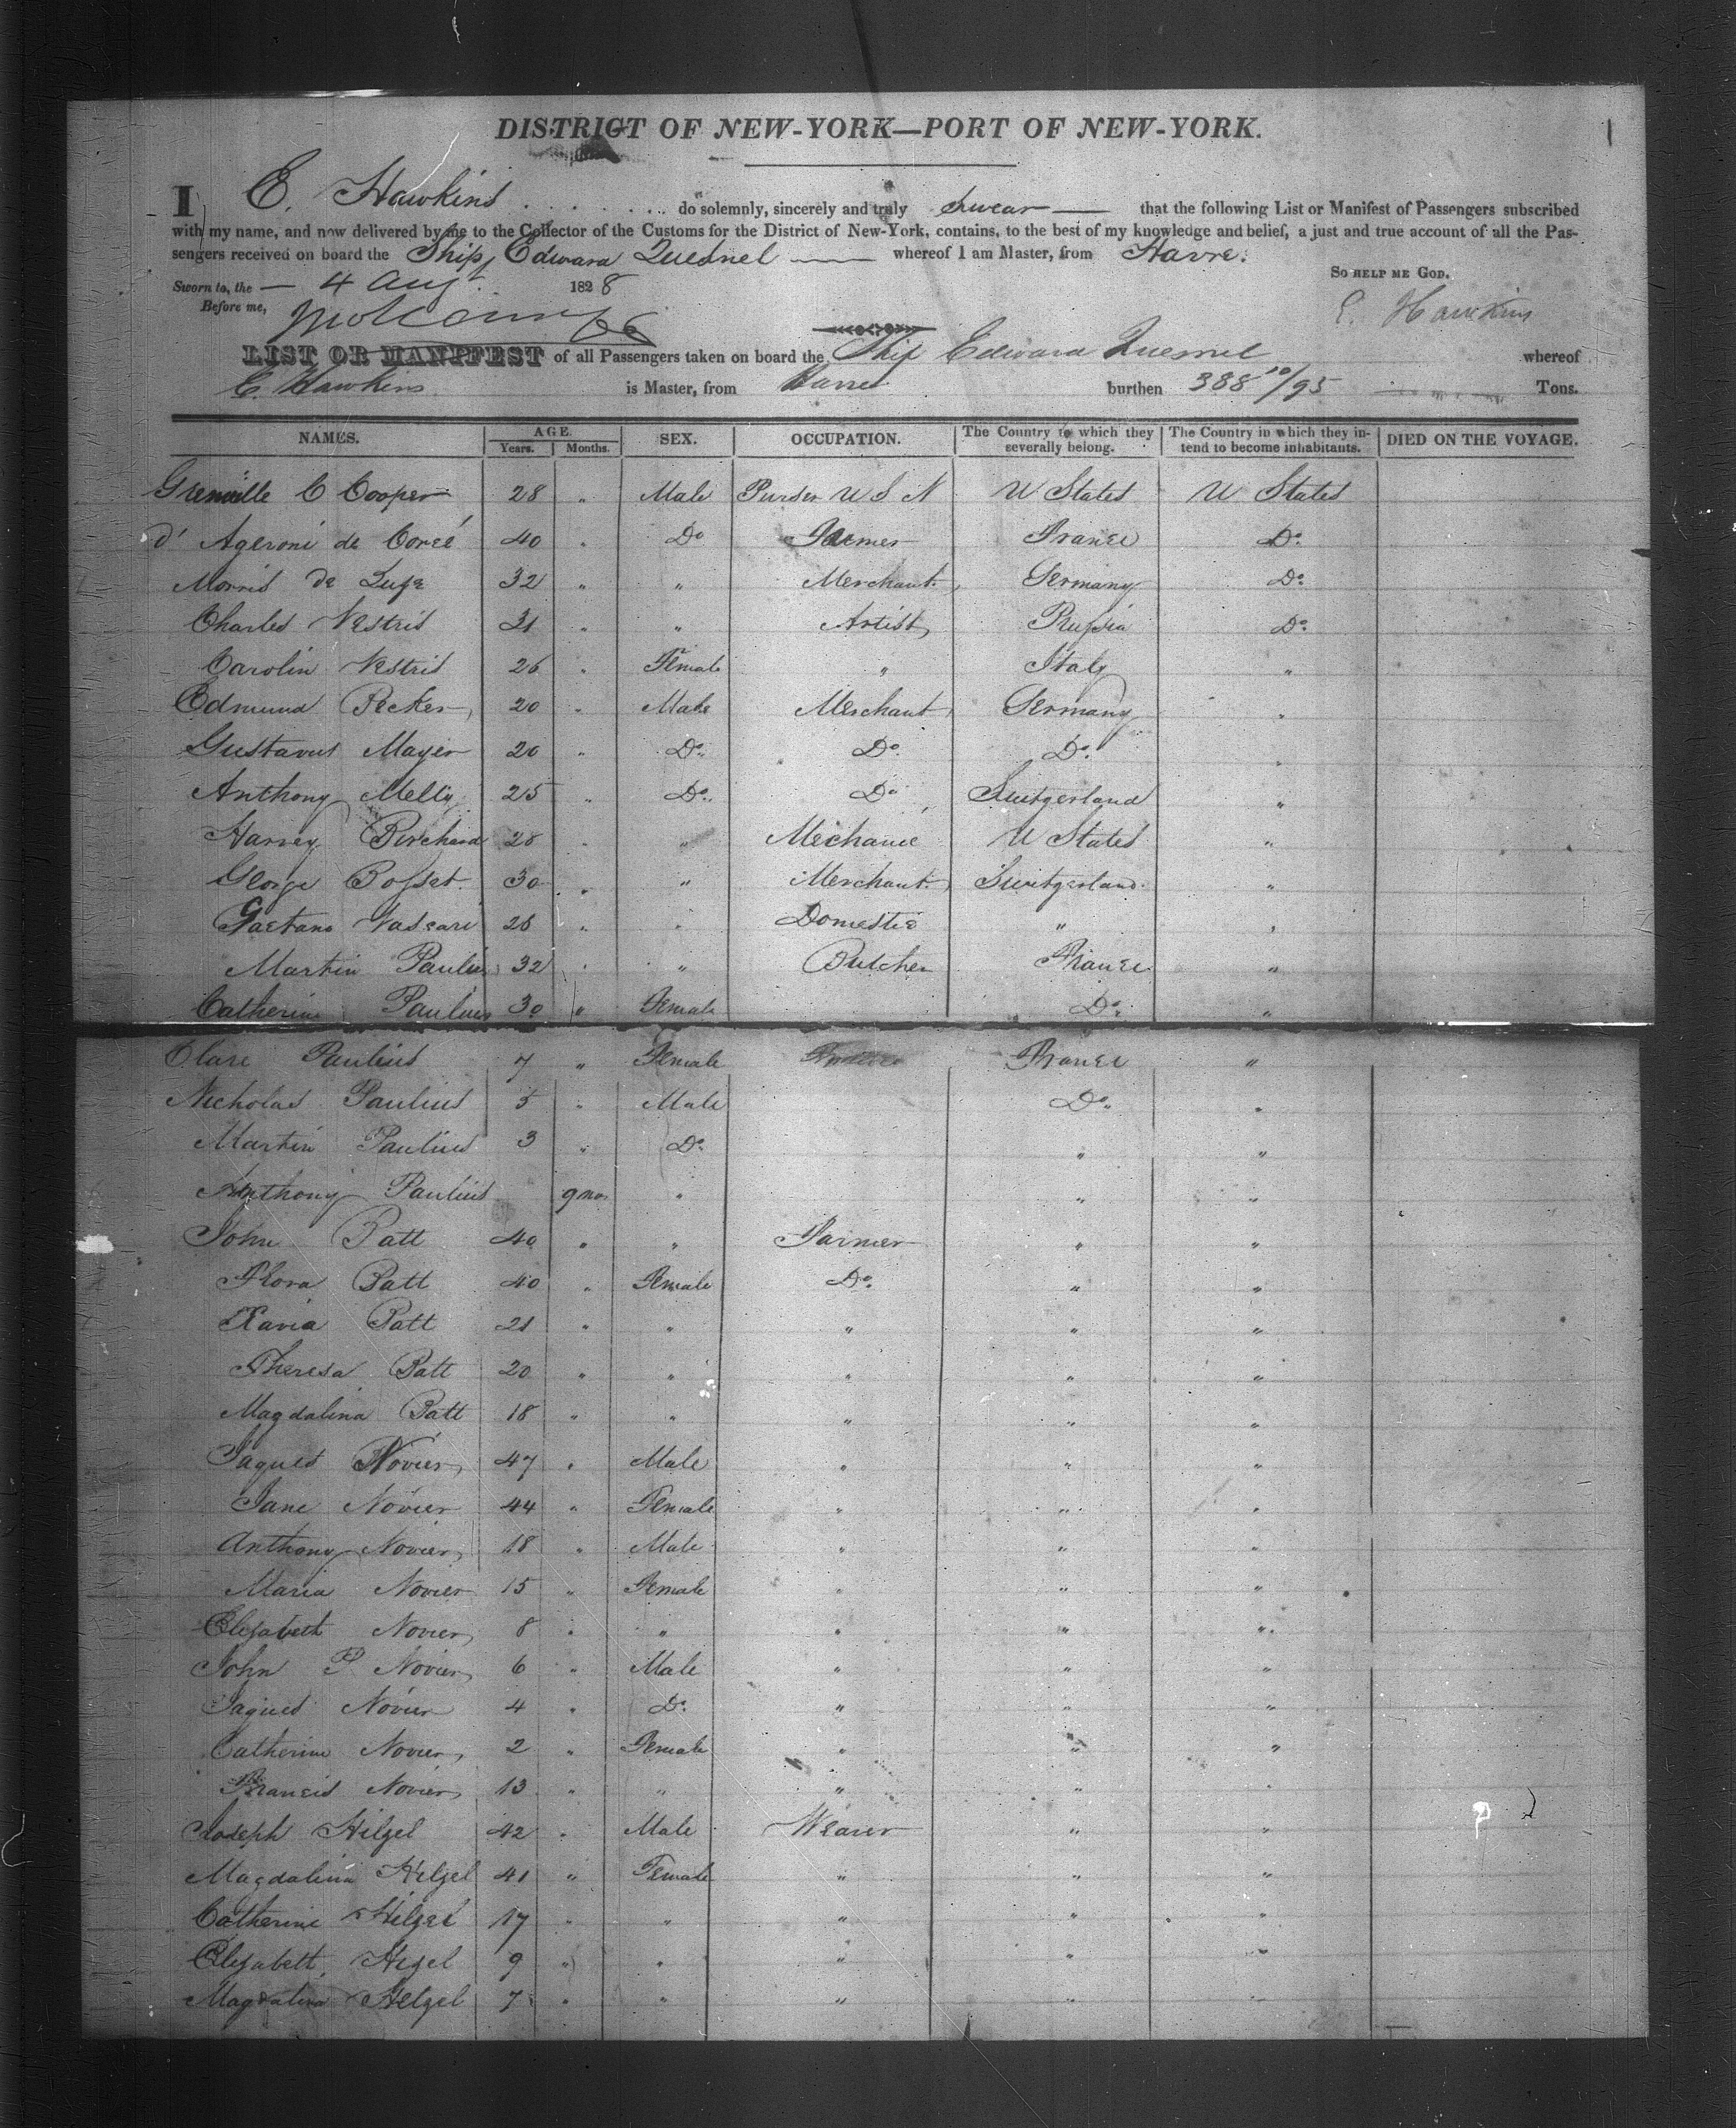 DISTRICT OF NEW-YORK—PORT OF NEW-YORK.
I E. Hawkins do solemnly, sincerely and truly swear — that the following List or Manifest of Passengers subscribed
with my name, and now delivered by me to the Collector of the Customs for the District of New-York, contains, to the best of my knowledge and belief, a just and true account of all the Pas-
sengers received on board the Ship Edward Quesnel — whereof I am Master, from Havre.
So help me God.
Sworn to, the — 4 Aug. 1828
Before me, E. Hawkins
LIST OR MANIFEST of all Passengers taken on board the Ship Edward Quesnel whereof
E. Hawkins is Master, from Havre burthen 388 10/95 Tons.
NAMES. AGE. Years. Months. SEX. OCCUPATION. The Country to which they severally belong. The Country in which they intend to become inhabitants. DIED ON THE VOYAGE.
Grenville C Cooper 28 " Male Purser U S N U States U States
d' Ageroni de Coreé 40 " Do Farmer France Do
Morris de Luze 32 " " Merchant Germany Do
Charles Vestris 31 " " Artist Russia Do
Carolin Vestris 26 " Female " Italy "
Edmund Becker 20 " Male Merchant Germany "
Gustavus Mayer 20 " Do Do Do "
Anthony Melly 25 " Do Do Switzerland "
Harvey Birchard 28 " " Mechanic U States "
George Bosset 30 " " Merchant Switzerland "
Gaetano Vascari 28 " " Domestic " "
Martin Paulius 32 " " Butcher France "
Catherine Paulius 30 " Female Do "
Clare Paulius 7 " Female France "
Nicholas Paulius 5 " Male Do "
Martin Paulius 3 " Do " "
Anthony Paulius 9 mos " " "
John Batt 40 " " Farmer " "
Flora Batt 40 " Female Do " "
Xavia Batt 21 " " " " "
Theresa Batt 20 " " " " "
Magdalina Batt 18 " " " " "
Jaques Novier 47 " Male " " "
Jane Novier 44 " Female " " "
Anthony Novier 18 " Male " " "
Maria Novier 15 " Female " " "
Elizabeth Novier 8 " " " " "
John P. Novier 6 " Male " " "
Jaques Novier 4 " Do " " "
Catherine Novier 2 " Female " " "
Francis Novier 13 " " " " "
Joseph Hilzel 42 " Male Weaver " "
Magdalina Helzel 41 " Female " " "
Catherine Hilzel 17 " " " " "
Elizabeth Hezel 9 " " " " "
Magdalina Helzel 7 " " " " "